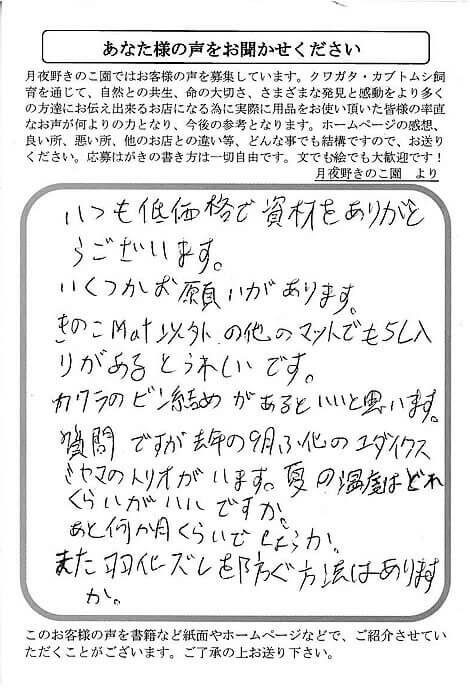 あなた様の声をお聞かせください
月夜野きのこ園ではお客様の声を募集しています。クワガタ・カブトムシ飼
育を通じて、自然との共生、命の大切さ、さまざまな発見と感動をより多く
の方達にお伝え出来るお店になる為に実際に用品をお使い頂いた皆様の率直
なお声が何よりの力となり、今後の参考となります。ホームページの感想、
良い所、悪い所、他のお店との違い等、どんな事でも結構ですので、お送り
ください。応募はがきの書き方は一切自由です。文でも絵でも大歓迎です！
月夜野きのこ園　より
いつも低価格で資材をありがと
うございます。
いくつかお願いがあります。
きのこMat以外の他のマットでも5L入
りがあるとうれしいです。
カワラのビン詰めがあるといいと思います。
質問ですが去年の9月ふ化のユダイクス
ミヤマのトリオがいます。夏の温度はどれ
くらいがいいですか。
あと何か月くらいでしょうか。
また羽化ズレを防ぐ方法はあります
か。
このお客様の声を書籍など紙面やホームページなどで、ご紹介させてい
ただくことがございます。ご了承の上お送り下さい。